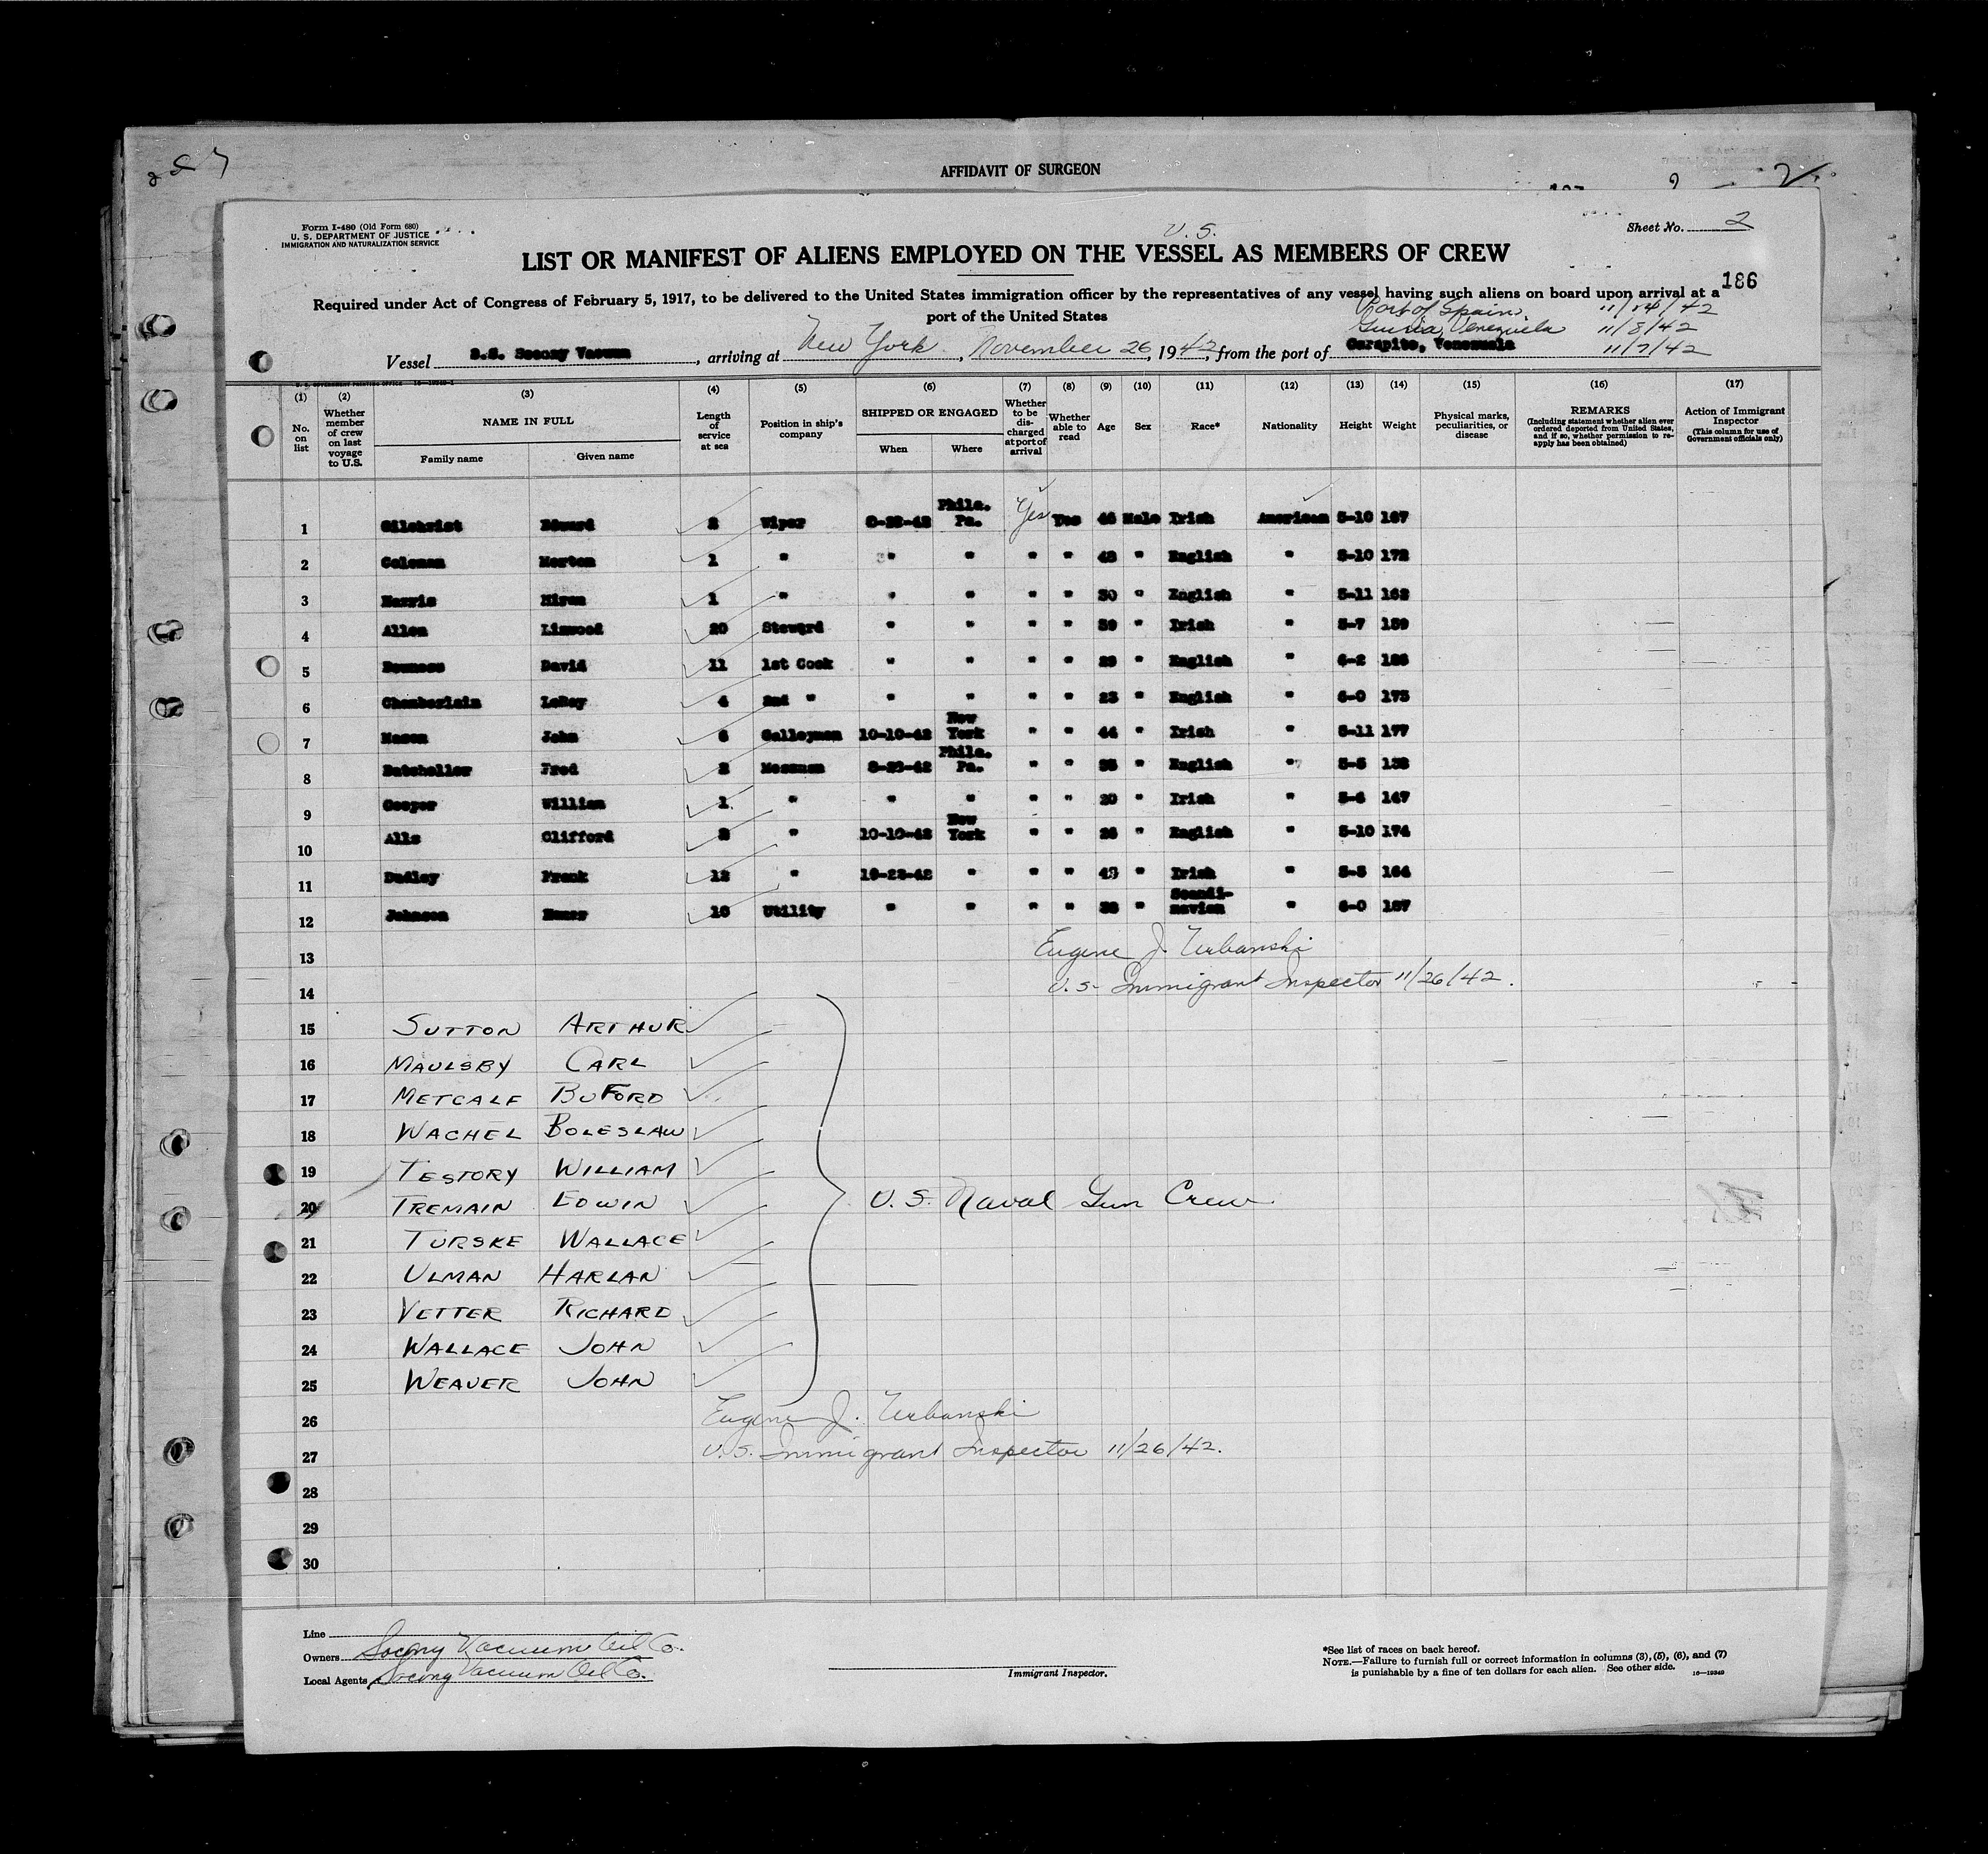 257
AFFIDAVIT OF SURGEON
2
Form I-480 (Old Form 680)
U. S. DEPARTMENT OF JUSTICE
IMMIGRATION AND NATURALIZATION SERVICE
Sheet No. 2
U. S.
LIST OR MANIFEST OF ALIENS EMPLOYED ON THE VESSEL AS MEMBERS OF CREW
186
Required under Act of Congress of February 5, 1917, to be delivered to the United States immigration officer by the representatives of any vessel having such aliens on board upon arrival at a
port of the United States
Port of Spain 11/14/42
Guiria, Venezuela 11/8/42
Vessel S.S. Socony Vacuum, arriving at New York, November 26, 1942, from the port of Caripito, Venezuela 11/7/42
(1) (2) (3) (4) (5) (6) (7) (8) (9) (10) (11) (12) (13) (14) (15) (16) (17)
No. on list
Whether member of crew on last voyage to U.S.
NAME IN FULL
Family name Given name
Length of service at sea
Position in ship's company
SHIPPED OR ENGAGED
When Where
Whether to be discharged at port of arrival
Whether able to read
Age
Sex
Race*
Nationality
Height
Weight
Physical marks, peculiarities, or disease
REMARKS
(Including statement whether alien ever ordered deported from United States, and if so, whether permission to reapply has been obtained)
Action of Immigrant Inspector
(This column for use of Government officials only)
1 Gilchrist Edward 2 Wiper Phila. Pa. Yes Yes 46 Male Irish American 5-10 167
2 Coleman Morton 1 " " " " " 43 " English " 5-10 172
3 Harris Hiram 1 " " " " " 30 " English " 5-11 162
4 Allen Linwood 20 Steward " " " " 39 " Irish " 5-7 159
5 David 11 1st Cook " " " " 29 " English " 6-2
6 Chamberlain LeRoy 4 2nd " " " " " 23 " English " 6-0 175
7 Mason John 6 Galleyman 10-10-42 New York " " 44 " Irish " 5-11 177
8 Batcheller Fred 2 Messman Phila. Pa. " " " English " 5-5 138
9 Cooper William 1 " " " " " 20 " Irish " 5-6 147
10 Alls Clifford 2 " 10-10-42 New York " " 26 " English " 5-10 174
11 Dudley Frank 12 " 10-23-42 " " " 43 " Irish " 5-5 164
12 Johnson Henry 10 Utility " " " " " Scandinavian " 6-0 187
13 Eugene J. Urbanski
14 U. S. Immigrant Inspector 11/26/42.
15 SUTTON ARTHUR
16 MAULSBY CARL
17 METCALF BUFORD
18 WACHEL BOLESLAW
19 TESTORY WILLIAM
20 TREMAIN EDWIN U. S. Naval Gun Crew
21 TURSKE WALLACE
22 ULMAN HARLAN
23 VETTER RICHARD
24 WALLACE JOHN
25 WEAVER JOHN
26 Eugene J. Urbanski
27 U. S. Immigrant Inspector 11/26/42.
28
29
30
Line
Owners Socony Vacuum Oil Co.
Local Agents Socony Vacuum Oil Co.
Immigrant Inspector.
*See list of races on back hereof.
NOTE.—Failure to furnish full or correct information in columns (3), (5), (6), and (7)
is punishable by a fine of ten dollars for each alien. See other side. 16—19349